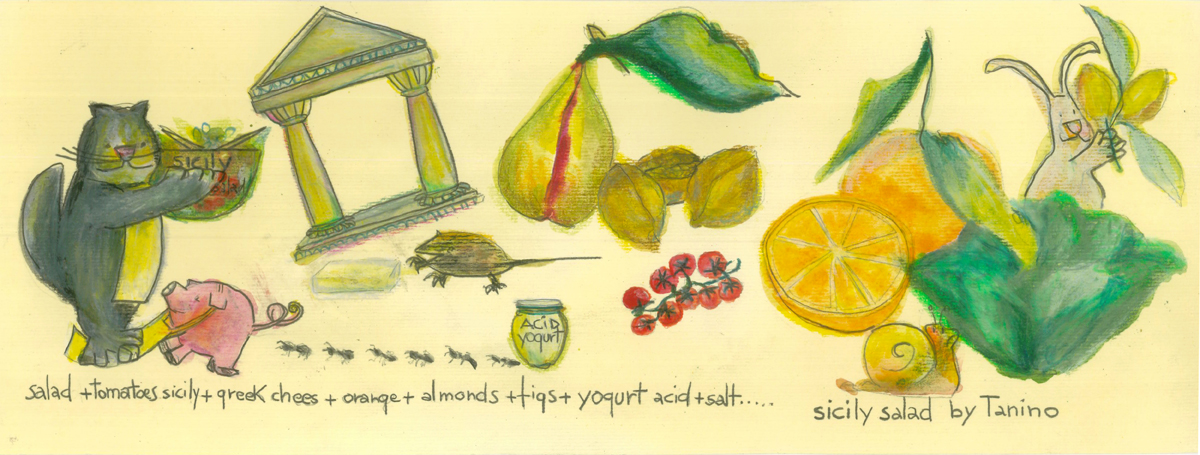 sicily
ACID
yogurt
salad + tomatoes sicily + greek chees + orange + almonds + figs + yogurt acid + salt.....
sicily salad by Tanino